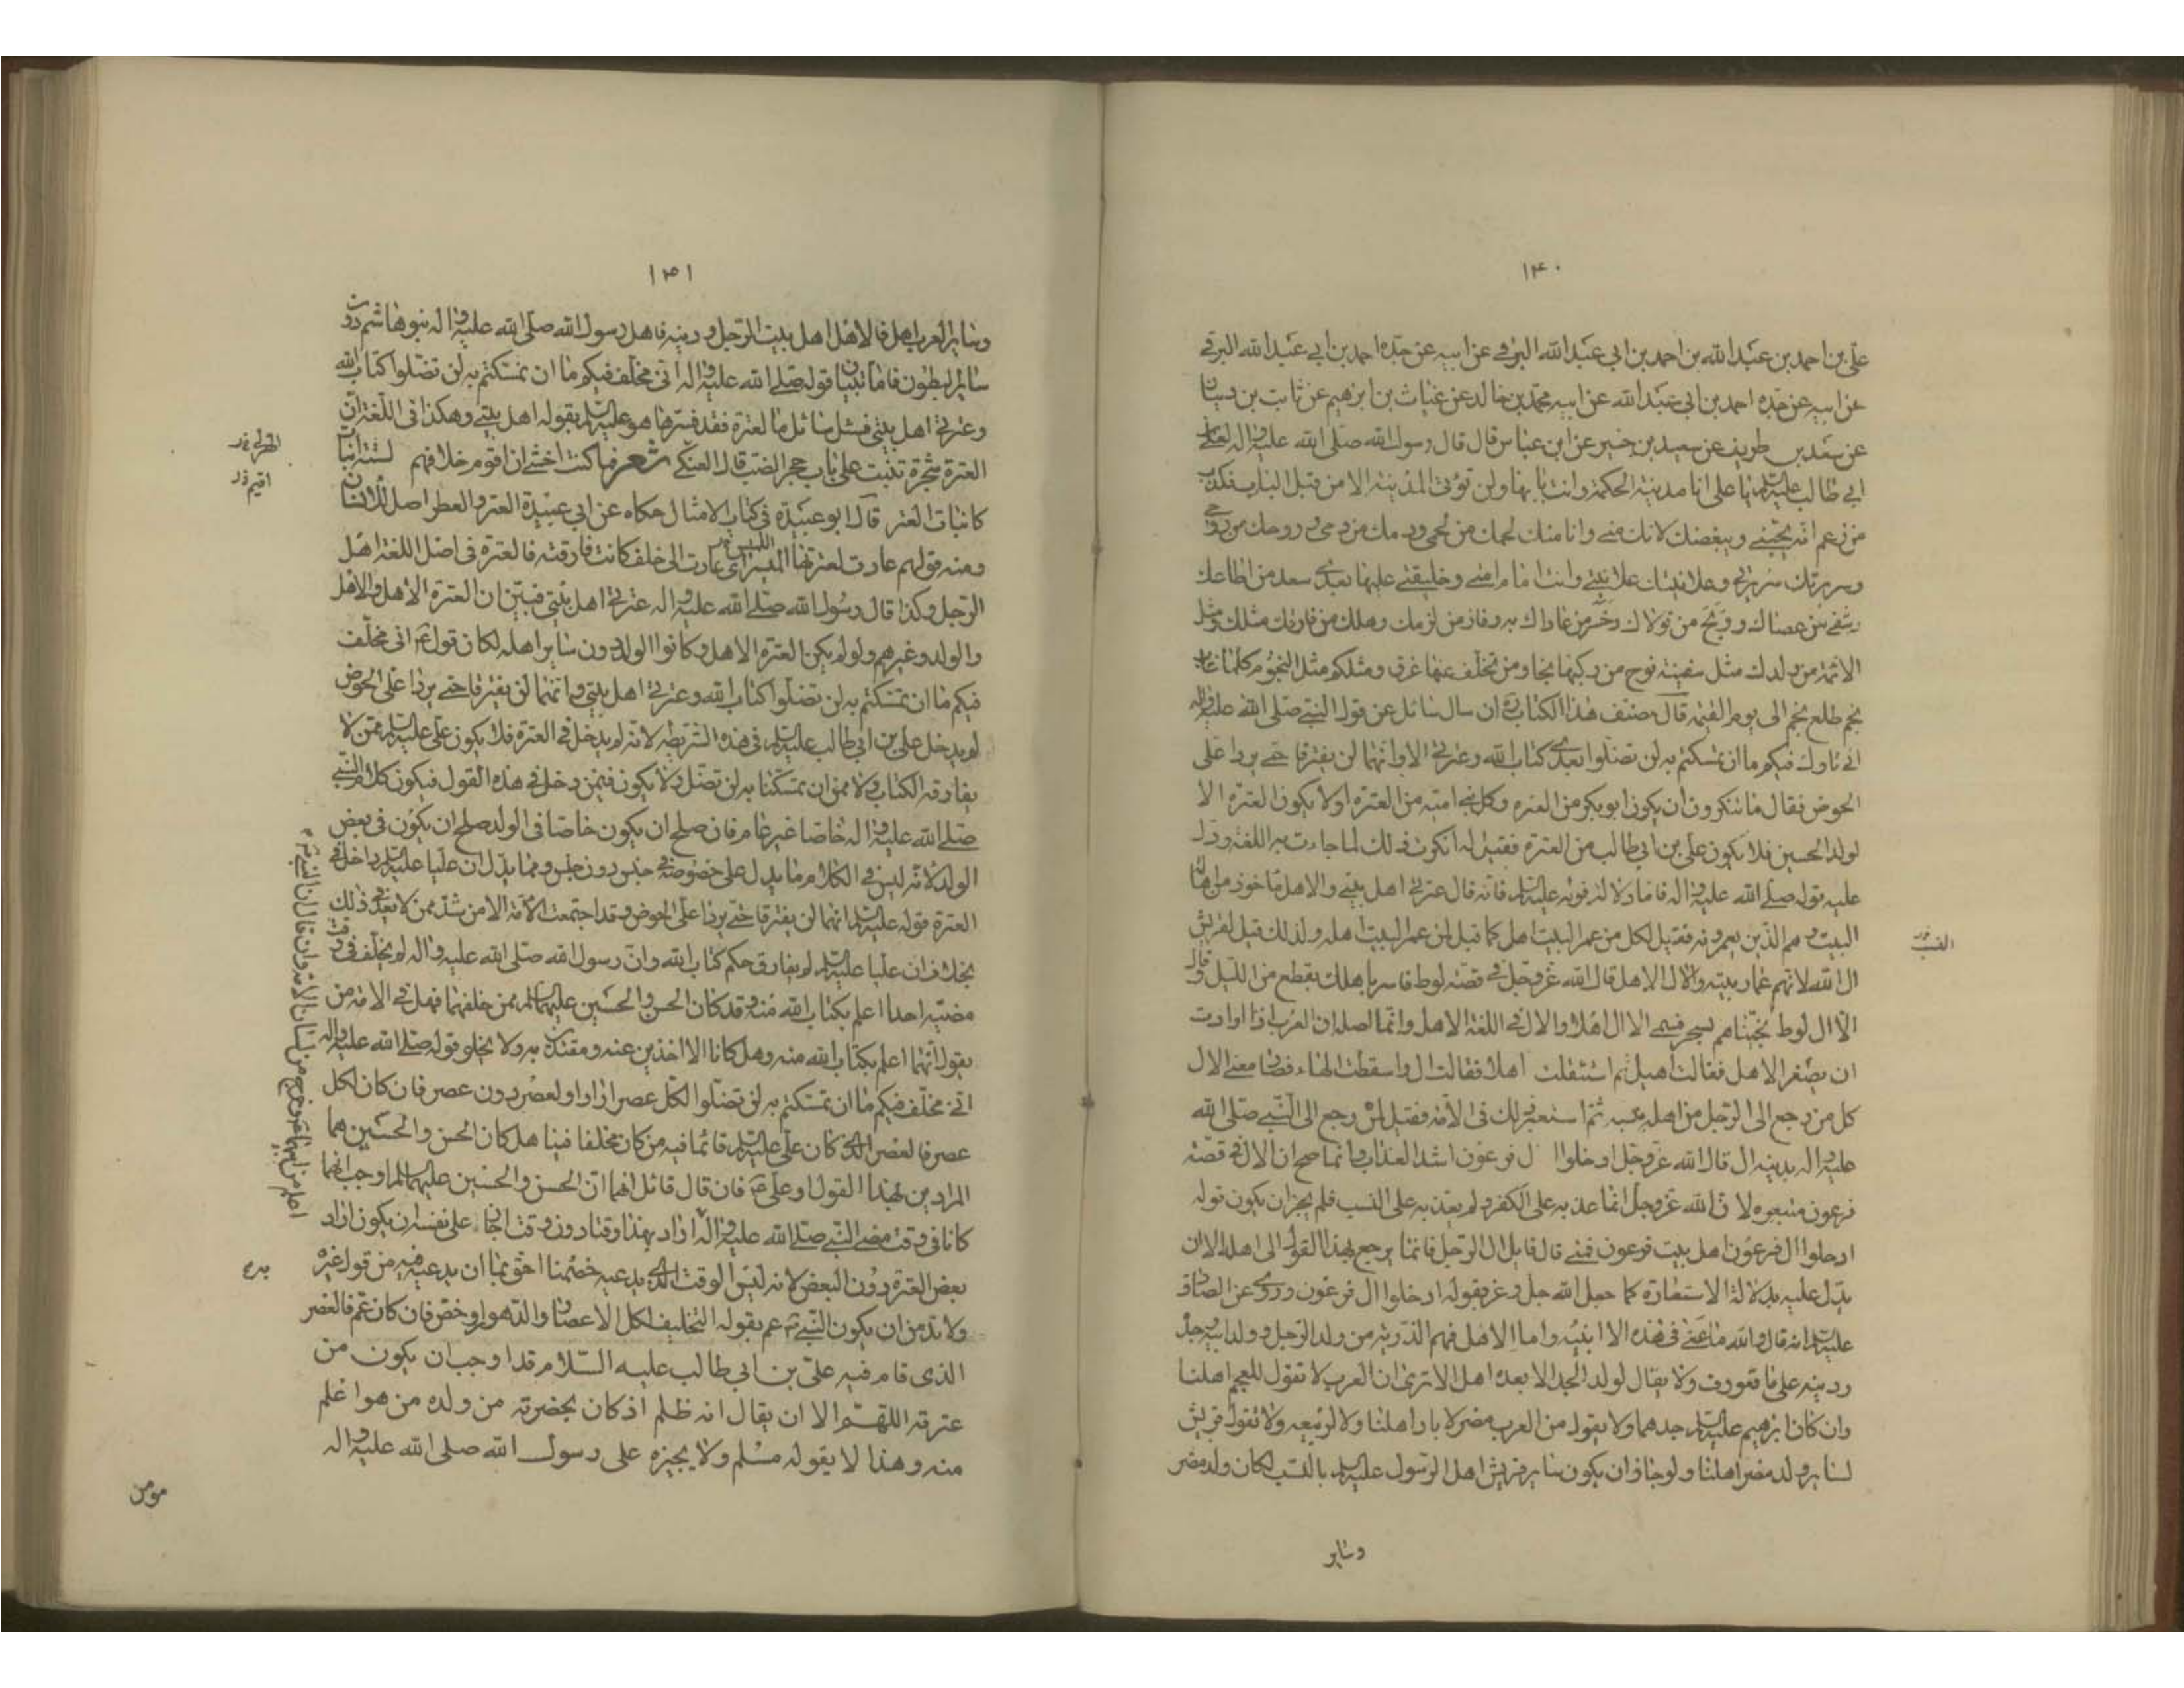 ۱۴۰
علي بن احمد بن عبد الله بن احمد بن ابي عبد الله البرقي عن ابيه عن جده احمد بن ابي عبد الله البرقي
عن ابيه عن جده احمد بن ابي عبد الله عن ابيه محمد بن خالد عن غياث بن ابرهيم عن ثابت بن دينار
عن سعد بن طريف عن سعيد بن جبير عن ابن عباس قال قال رسول الله صلى الله عليه واله لعلي بن
ابي طالب عليه السلم يا علي انا مدينة الحكمة وانت بابها ولن تؤتى المدينة الا من قبل الباب فكذب
من زعم انه يحبني ويبغضك لانك مني وانا منك لحمك من لحمي ودمك من دمي وروحك من روحي
وسريرتك سريرتي وعلانيتك علانيتي وانت امام امتي وخليفتي عليها بعدي سعد من اطاعك
وشقي من عصاك وربح من تولاك وخسر من عاداك وفاز من لزمك وهلك من فارقك مثلك ومثل
الائمة من ولدك مثل سفينة نوح من ركبها نجا ومن تخلف عنها غرق ومثلكم مثل النجوم كلما غاب
نجم طلع نجم الى يوم القيمة قال مصنف هذا الكتاب ره ان سال سائل عن قول النبي صلى الله عليه واله
اني تارك فيكم ما ان تمسكتم به لن تضلوا بعدي كتاب الله وعترتي الا وانهما لن يفترقا حتى يردا علي
الحوض فقال ما تنكرون ان يكون ابو بكر من العترة وكل بني امية من العترة او لا يكون العترة الا
لولد الحسين فلا يكون علي بن ابي طالب من العترة فقيل له انكرت ذلك لما جاءت به اللغة ودل
عليه قوله صلى الله عليه واله فاما دلالة قوله عليه السلم فانه قال عترتي اهل بيتي والاهل ماخوذ من اهالة
البيت وهم الذين يعمرونه فقيل لكل من عمر البيت اهل كما قيل لمن عمر البيت اهله ولذلك قيل لقريش
ال الله لانهم عمار بيته والال الاهل قال الله عز وجل في قصة لوط فاسر باهلك بقطع من الليل وقال
الا ال لوط نجيناهم بسحر فسمى الال اهلا والال في اللغة الاهل وانما اصله ان العرب اذا ارادت
ان يصغر الاهل فقالت اهيل ثم استثقلت اهلا فقالت ال واسقطت الهاء فصار معنى الال
كل من رجع الى الرجل من اهله بنسبه ثم استعير ذلك في الامة فقيل لمن رجع الى النبي صلى الله
عليه واله بدينه ال قال الله عز وجل ادخلوا ال فرعون اشد العذاب وانما صح ان الال في قصة
فرعون متبعوه لان الله عز وجل انما عذبه على الكفر ولم يعذبه على النسب فلم يجز ان يكون قوله
ادخلوا ال فرعون اهل بيت فرعون فمتى قال قايل ال الرجل فانما يرجع بهذا القول الى اهله الا ان
يدل عليه بدلالة الاستعارة كما جعل الله جل وعز بقوله ادخلوا ال فرعون وروي عن الصادق
عليه السلم انه قال والله ما عنى في هذه الا ابنته واما الاهل فهم الذرية من ولد الرجل وولد ابيه وجده
ودينه على ما تعورف ولا يقال لولد الجد الابعد اهل الا ترى ان العرب لا تقول للعجم اهلنا
وان كان ابرهيم عليه السلم جدهما ولا يقول من العرب مضر لاياد اهلنا ولا لربيعه ولا تقول قريش
لساير ولد مضر اهلنا ولو جاز ان يكون ساير قريش اهل الرسول عليه السلم بالنسب لكان ولد مضر
وساير
۱۴۱
وساير العرب اهله فالاهل اهل بيت الرجل ودينه فاهل رسول الله صلى الله عليه واله بنو هاشم دون
ساير البطون فاما ثبتنا قوله صلى الله عليه واله اني مخلف فيكم ما ان تمسكتم به لن تضلوا كتاب الله
وعترتي اهل بيتي فسئل سائل ما العترة فقد فسرها هو عليه السلم بقوله اهل بيتي وهكذا في اللغة ان
العترة شجرة تنبت على باب حجر الضب قال الهذلي شعر فما كنت اخشى ان اقوم خلافهم لستة ابيات
كما نبات العتر قال ابو عبيدة في كتاب الامثال حكاه عن ابي عبيدة العتر والعطر اصل للانسان
ومنه قولهم عادت لعترتها لميس اي عادت الى خلف كانت فارقته فالعترة في اصل اللغة اهل
الرجل وكذا قال رسول الله صلى الله عليه واله عترتي اهل بيتي فبين ان العترة الاهل والاهل
والولد وغيرهم ولو لم يكن العترة الاهل وكانوا الولد دون ساير اهله لكان قوله ع اني مخلف
فيكم ما ان تمسكتم به لن تضلوا كتاب الله وعترتي اهل بيتي وانهما لن يفترقا حتى يردا علي الحوض
لم يدخل علي بن ابي طالب عليه السلم في هذه الشريطة لانه لم يدخل في العترة فلا يكون علي عليه السلم ممن لا
يفارقه الكتاب ولا ممن ان تمسكنا به لن نضل ولا يكون فيمن دخل في هذه القول فيكون كلام النبي
صلى الله عليه واله خاصا غير عام فان صلح ان يكون خاصا في الولد صلح ان يكون في بعض
الولد لانه ليس في الكلام ما يدل على خصوصية جنس دون جنس ومما يدل ان عليا عليه السلم داخل في
العترة قوله عليه السلم انهما لن يفترقا حتى يردا علي الحوض وقد اجتمعت الامة الا من شذ ممن لا يعد في ذلك
بخلاف ان عليا عليه السلم لم يفارق حكم كتاب الله وان رسول الله صلى الله عليه واله لم يخلف في وقت
مضيه احدا اعلم بكتاب الله منه وقد كان الحسن والحسين عليهما السلم ممن خلفهما فهل في الامة من
يقول انهما اعلم بكتاب الله منه وهل كانا الا اخذين عنه ومقتدين به ولا يخلو قوله صلى الله عليه واله
اني مخلف فيكم ما ان تمسكتم به لن تضلوا لكل عصر اراد او لعصر دون عصر فان كان لكل
عصر فالعصر الذي كان علي عليه السلم قائما فيه من كان مخلفا فينا هل كان الحسن والحسين هما
المراد من بهذا القول او علي ع فان قال قائل انهما ان الحسن والحسين عليهما السلم اوجب انهما
كانا في وقت مضى النبي صلى الله عليه واله اراد بهذا وقتا دون وقت اجاز على نفسه ان يكون اراد
بعض العترة دون البعض لانه ليس الوقت الذي يدعيه خصمنا احق بما ان يدعيه فيه من قول غيره
ولا بد من ان يكون النبي ص عم بقوله التخليف لكل الاعصار والدهور او خص فان كان عم فالعصر
الذي قام فيه علي بن ابي طالب عليه السلام قد اوجب ان يكون من
عترته اللهم الا ان يقال انه ظلم اذ كان بحضرته من ولده من هو اعلم
منه وهذا لا يقوله مسلم ولا يجيزه على رسول الله صلى الله عليه واله
مومن